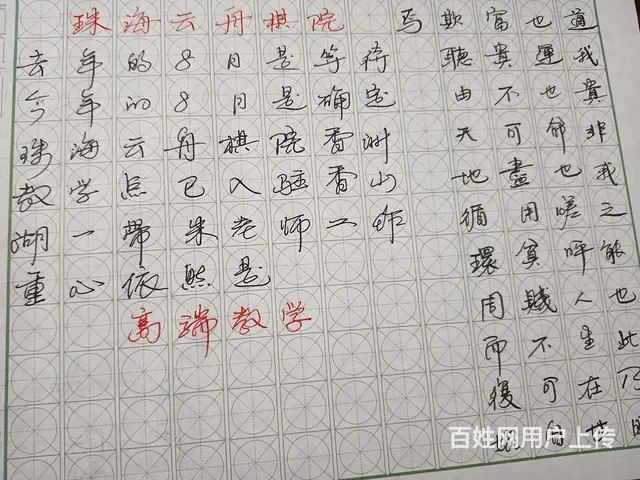 珠海云舟棋院
去年的8月是等待
今年的8月是确定
珠海云舟棋院香洲
教学点已入驻香山
湖一带 朱老师工作
重心依然是
高端教学
道我貴非我之能也此乃
也運也命也嗟呼人生在世
富貴不可盡用貧賤不可自
欺聽由天地循環周而復
焉
百姓网用户上传